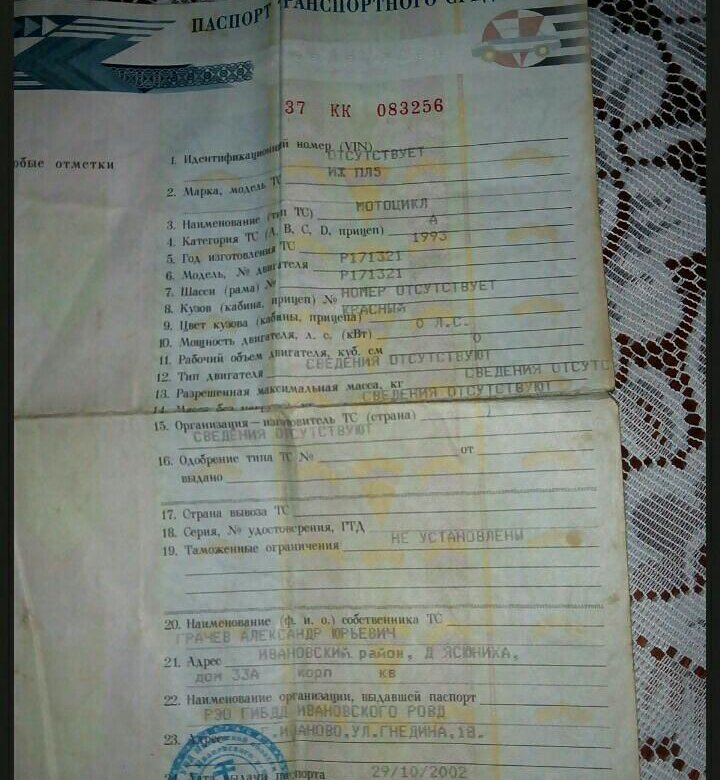 ПАСПОРТ ТРАНСПОРТНОГО
37 КК 083256
обые отметки
1. Идентификационный номер (VIN)
ОТСУТСТВУЕТ
2. Марка, модель ТС ИЖ ПЛ5
3. Наименование (тип ТС) МОТОЦИКЛ
4. Категория ТС (А, В, С, D, прицеп) А
5. Год изготовления ТС 1993
6. Модель, № двигателя Р171321
7. Шасси (рама) № Р171321
8. Кузов (кабина, прицеп) № НОМЕР ОТСУТСТВУЕТ
9. Цвет кузова (кабины, прицепа) КРАСНЫЙ
10. Мощность двигателя, л. с. (кВт) 0 Л.С.
11. Рабочий объем двигателя, куб. см 0
12. Тип двигателя СВЕДЕНИЯ ОТСУТСТВУЮТ
13. Разрешенная максимальная масса, кг СВЕДЕНИЯ ОТСУТС
14. Масса без СВЕДЕНИЯ ОТСУТСТВУЮТ
15. Организация—изготовитель ТС (страна)
СВЕДЕНИЯ ОТСУТСТВУЮТ
16. Одобрение типа ТС № от
выдано
17. Страна вывоза ТС
18. Серия, № удостоверения, ГТД
19. Таможенные ограничения НЕ УСТАНОВЛЕНЫ
20. Наименование (ф. и. о.) собственника ТС
ГРАЧЕВ АЛЕКСАНДР ЮРЬЕВИЧ
21. Адрес ИВАНОВСКИЙ район, Д ЯСЮНИХА,
дом 33А корп кв
22. Наименование организации, выдавшей паспорт
РЭО ГИБДД ИВАНОВСКОГО РОВД
23. Адрес Г.ИВАНОВО,УЛ.ГНЕДИНА,18.
24. Дата выдачи паспорта 29/10/2002